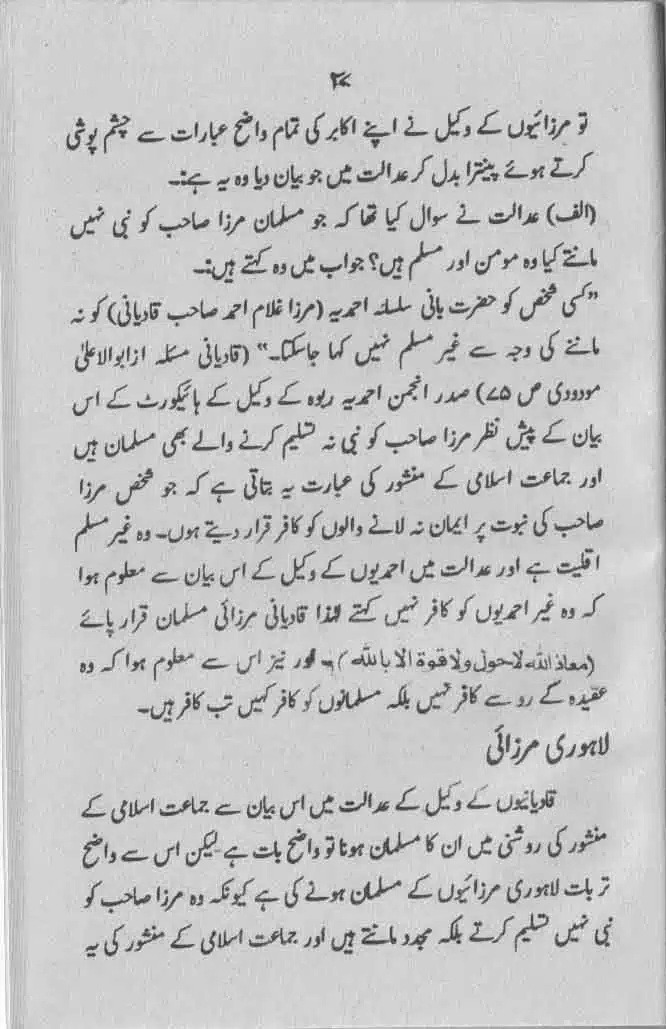 ۲۷
تو مرزائیوں کے وکیل نے اپنے اکابر کی تمام واضح عبارات سے چشم پوشی
کرتے ہوئے پینترا بدل کر عدالت میں جو بیان دیا وہ یہ ہے:۔
(الف) عدالت نے سوال کیا تھا کہ جو مسلمان مرزا صاحب کو نبی نہیں
مانتے کیا وہ مومن اور مسلم ہیں؟ جواب میں وہ کہتے ہیں:۔
”کسی شخص کو حضرت بانی سلسلہ احمدیہ (مرزا غلام احمد صاحب قادیانی) کو نہ
ماننے کی وجہ سے غیر مسلم نہیں کہا جاسکتا۔“ (قادیانی مسئلہ از ابوالاعلیٰ
مودودی ص ۷۵) صدر انجمن احمدیہ ربوہ کے وکیل کے ہائیکورٹ کے اس
بیان کے پیش نظر مرزا صاحب کو نبی نہ تسلیم کرنے والے بھی مسلمان ہیں
اور جماعت اسلامی کے منشور کی عبارت یہ بتاتی ہے کہ جو شخص مرزا
صاحب کی نبوت پر ایمان نہ لانے والوں کو کافر قرار دیتے ہوں۔ وہ غیر مسلم
اقلیت ہے اور عدالت میں احمدیوں کے وکیل کے اس بیان سے معلوم ہوا
کہ وہ غیر احمدیوں کو کافر نہیں کہتے لہٰذا قادیانی مرزائی مسلمان قرار پائے
(معاذ اللہ لاحول ولا قوۃ الا باللہ)۔ اور نیز اس سے معلوم ہوا کہ وہ
عقیدہ کے رو سے کافر نہیں بلکہ مسلمانوں کو کافر کہیں تب کافر ہیں۔
لاہوری مرزائی
قادیانیوں کے وکیل کے عدالت میں اس بیان سے جماعت اسلامی کے
منشور کی روشنی میں ان کا مسلمان ہونا تو واضح بات ہے لیکن اس سے واضح
تر بات لاہوری مرزائیوں کے مسلمان ہونے کی ہے کیونکہ وہ مرزا صاحب کو
نبی نہیں تسلیم کرتے بلکہ مجدد مانتے ہیں اور جماعت اسلامی کے منشور کی یہ